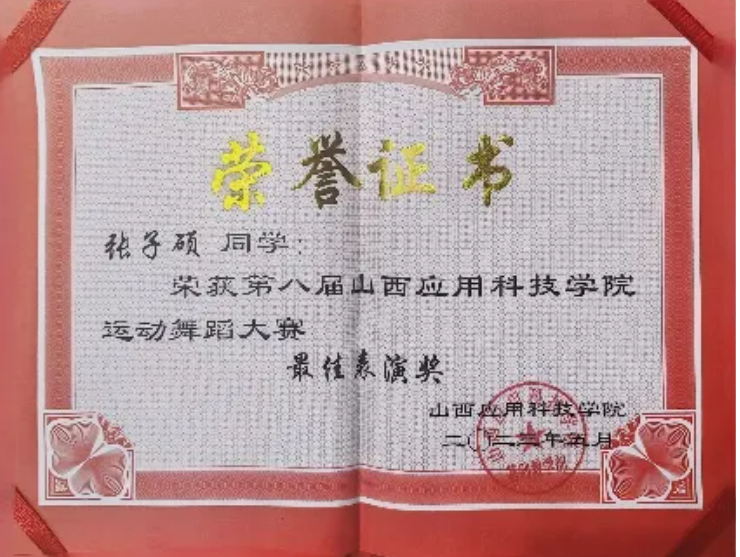 荣誉证书
张子硕 同学：
荣获第八届山西应用科技学院
运动舞蹈大赛
最佳表演奖
山西应用科技学院
二〇二三年五月